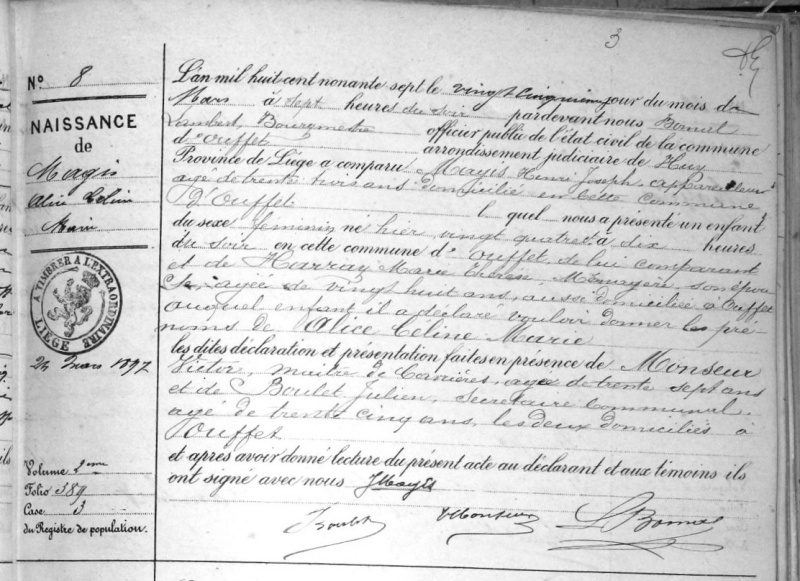 3
N° 8
NAISSANCE
de
Magis
Alice Celine
Marie
A TIMBRER A L'EXTRAORDINAIRE
LIEGE
24 Mars 1897
Volume 2me
Folio 389
Case 3
du Registre de population.
L'an mil huit cent nonante sept le vingt cinquième jour du mois de
Mars à sept heures du soir pardevant nous Bonmel
Lambert, Bourgmestre officier public de l'état civil de la commune
d'Ouffet arrondissement judiciaire de Huy
Province de Liège a comparu Mayis Henri Joseph, appareilleur
agé de trente trois ans domicilié en cette commune
d'Ouffet lequel nous a présenté un enfant
du sexe féminin né hier vingt quatre à dix heures
du soir en cette commune d'Ouffet, de lui comparant
et de Harray Marie thérèse, Ménagère, son épou
se, agée de vingt huit ans, aussi domiciliée à Ouffet
auquel enfant il a déclaré vouloir donner les pré-
noms de Alice Céline Marie
les dites déclaration et présentation faites en présence de Monseur
Victor, maître de Carrières, agé de trente sept ans
et de Boulet Julien, Secretaire Communal,
agé de trente cinq ans, les deux domiciliés à
Ouffet
et après avoir donné lecture du présent acte au déclarant et aux témoins ils
ont signé avec nous HMayis
JBoulet VMonseur LBonmel